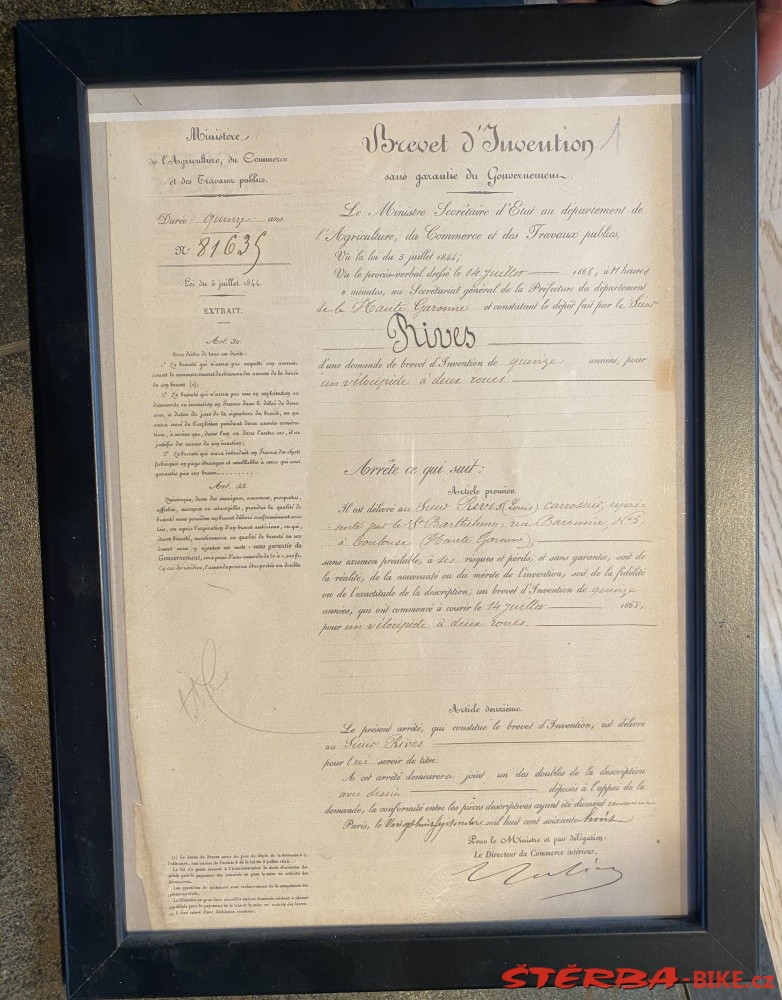 Ministère
de l'Agriculture, du Commerce
et des Travaux publics.
Durée: quinze ans
N° 81635
Loi du 5 juillet 1844.
EXTRAIT.
Art. 32.
Sera déchu de tous ses droits:
1° Le breveté qui n'aura pas acquitté son annuité
avant le commencement de chacune des années de la durée
de son brevet (1);
2° Le breveté qui n'aura pas mis en exploitation sa
découverte ou invention en France dans le délai de deux
ans, à dater du jour de la signature du brevet, ou qui
aura cessé de l'exploiter pendant deux années consécu-
tives, à moins que, dans l'un ou dans l'autre cas, il ne
justifie des causes de son inaction;
3° Le breveté qui aura introduit en France des objets
fabriqués en pays étranger et semblables à ceux qui sont
garantis par son brevet
Art. 33.
Quiconque, dans des enseignes, annonces, prospectus,
affiches, marques ou estampilles, prendra la qualité de
breveté sans posséder un brevet délivré conformément aux
lois, ou après l'expiration d'un brevet antérieur, ou qui,
étant breveté, mentionnera sa qualité de breveté ou son
brevet sans y ajouter ces mots: sans garantie du
Gouvernement, sera puni d'une amende de
En cas de récidive, l'amende pourra être portée au double
Brevet d'Invention 1
sans garantie du Gouvernement.
Le Ministre Secrétaire d'Etat au département de
l'Agriculture, du Commerce et des Travaux publics,
Vu la loi du 5 juillet 1844;
Vu le procès-verbal dressé le 14 juillet 1868, à 11 heures
minutes, au Secrétariat général de la Préfecture du département
de la Haute Garonne et constatant le dépôt fait par le Sieur
Rives
d'une demande de brevet d'Invention de quinze années, pour
un vélocipède à deux roues.
Arrête ce qui suit:
Article premier.
Il est délivré au Sieur Rives (Louis) carrossier, repré-
senté par le Sr Barthelemy, rue Baronnie N° 5,
à Toulouse (Haute Garonne),
sans examen préalable, à ses risques et périls, et sans garantie, soit de
la réalité, de la nouveauté ou du mérite de l'invention, soit de la fidélité
ou de l'exactitude de la description, un brevet d'Invention de quinze
années, qui ont commencé à courir le 14 juillet 1868,
pour un vélocipède à deux roues.
Article deuxième.
Le présent arrêté, qui constitue le brevet d'Invention, est délivré
au Sieur Rives
pour lui servir de titre.
A cet arrêté demeurera joint un des doubles de la description
avec dessin déposés à l'appui de la
demande, la conformité entre les pièces descriptives ayant été dûment reconnue
Paris, le Vingt huit septembre mil huit cent soixante huit
Pour le Ministre et par délégation:
Le Directeur du Commerce intérieur,
ŠTĚRBA-BIKE.cz